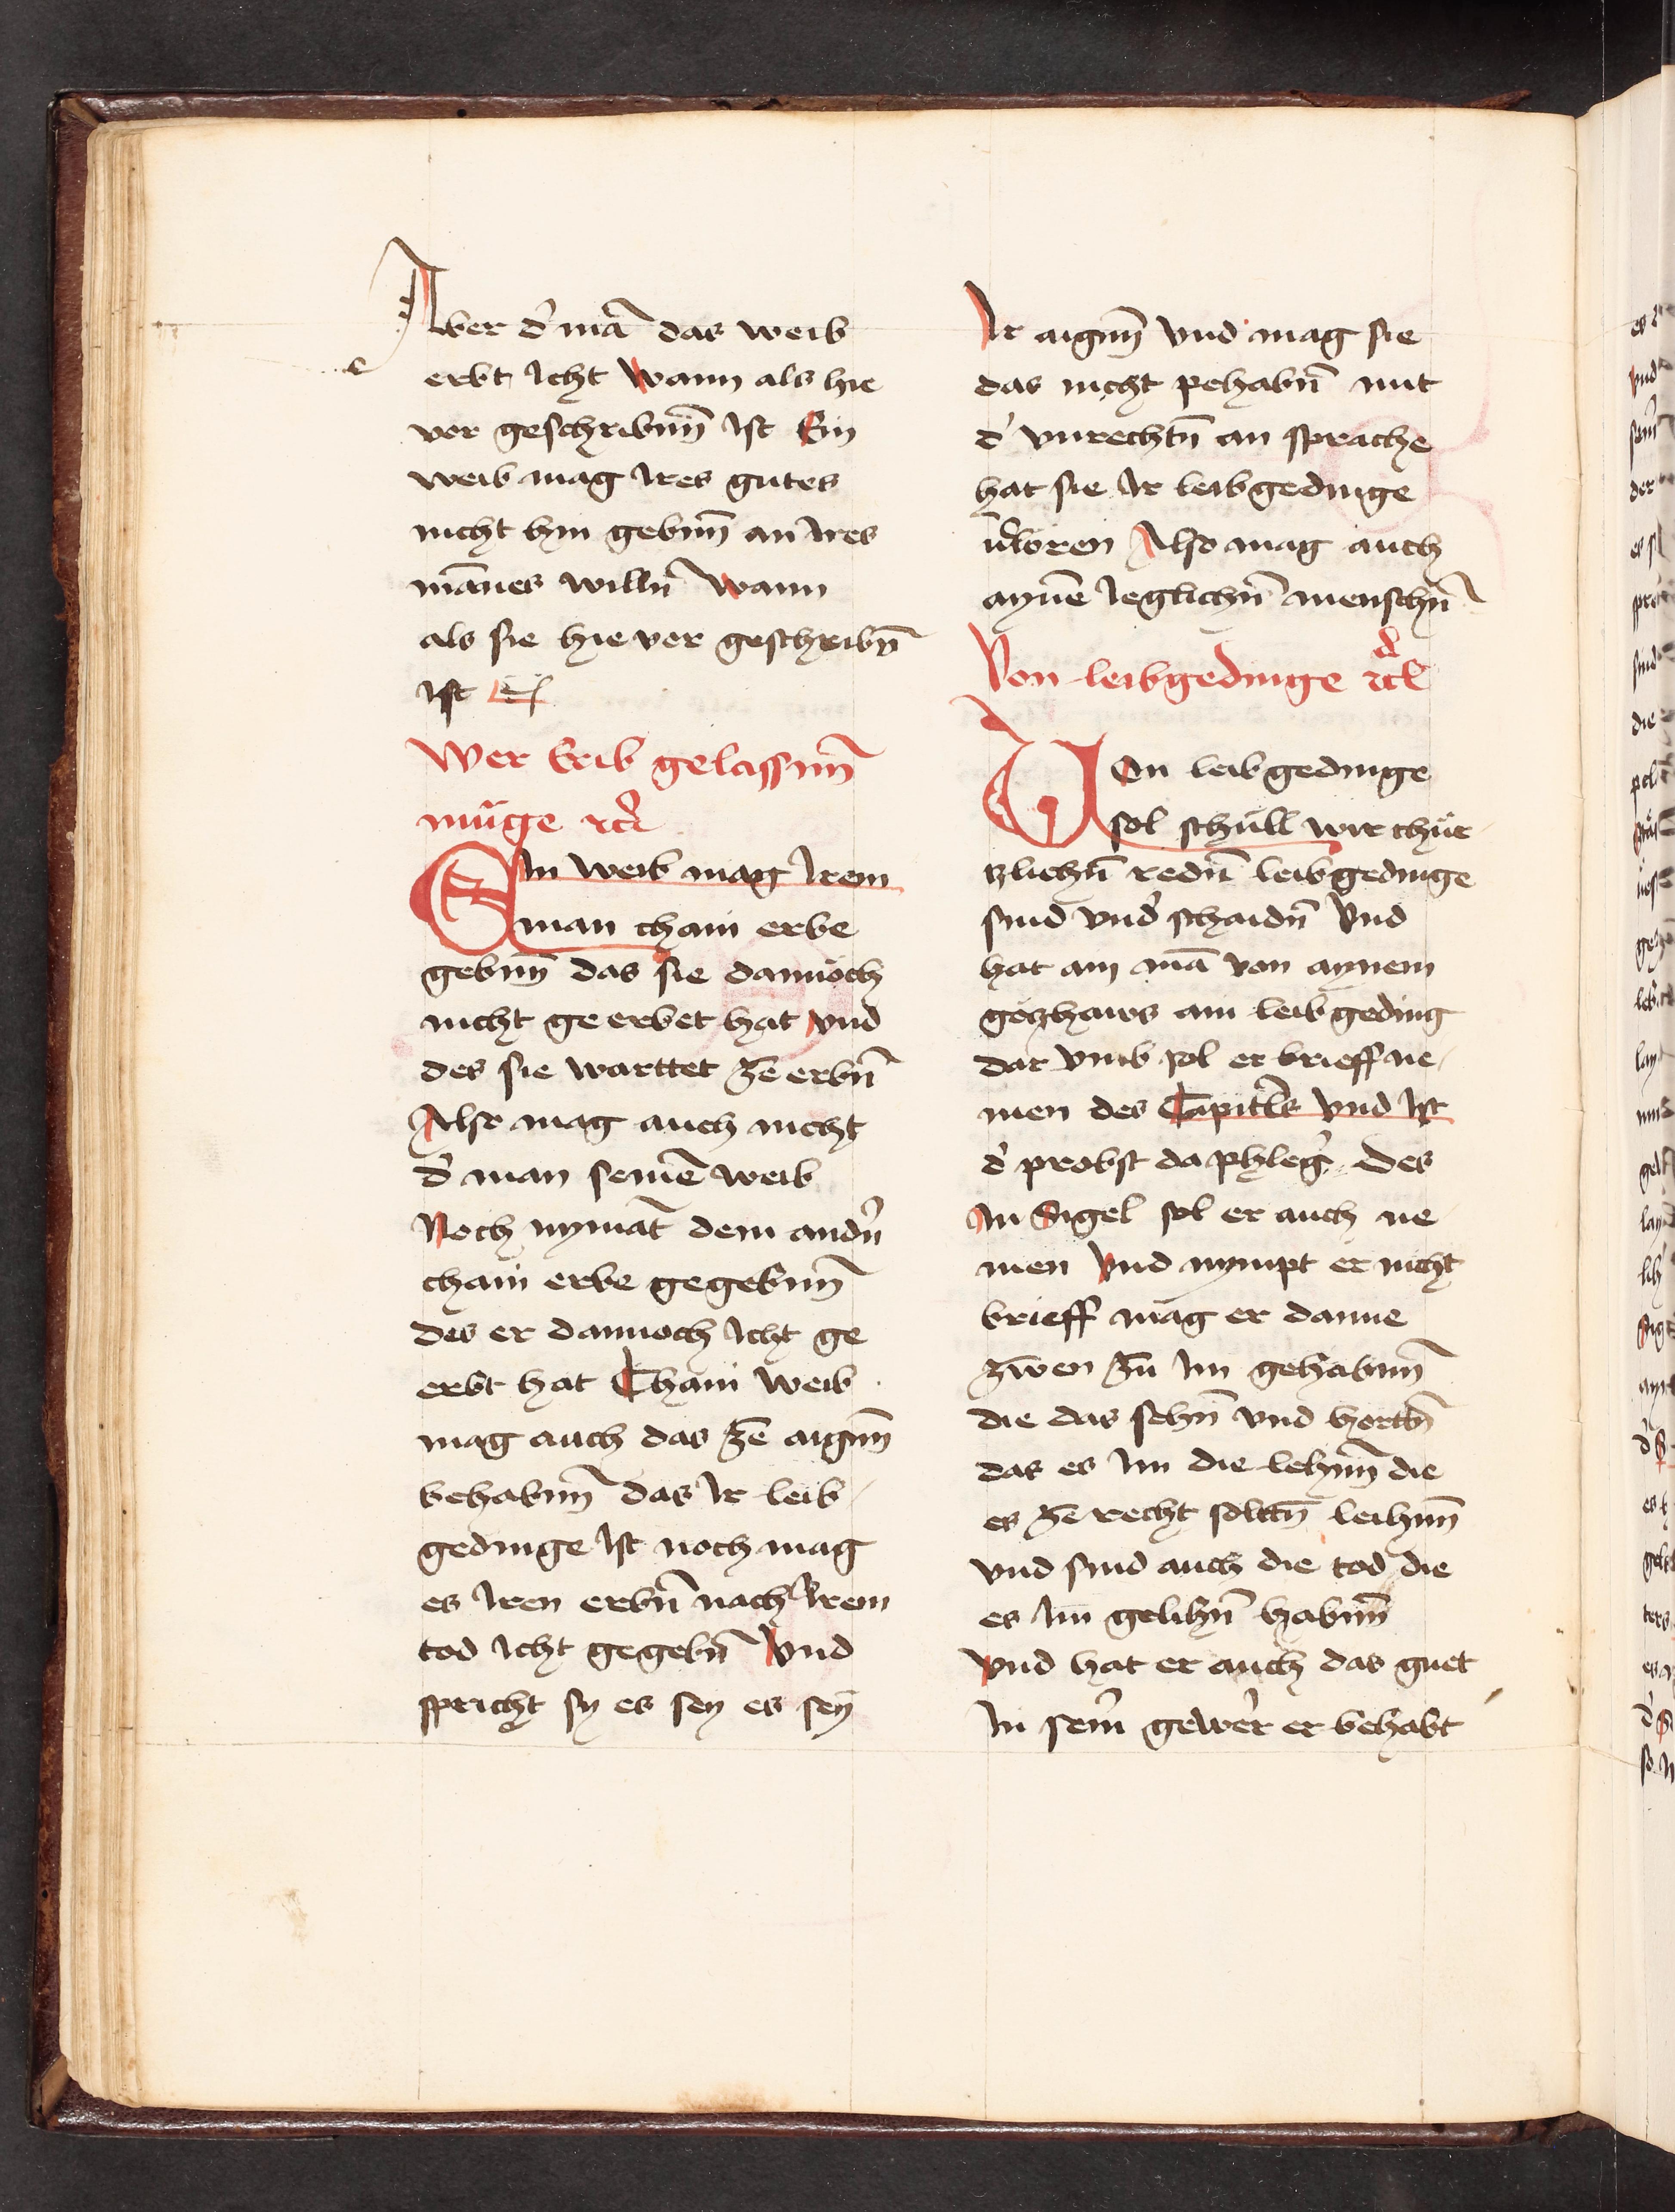 Aber d' mā das weib
erbt Icht Wann als hie
vor geschribnn̄ Ist Ein
weib mag Ires gutes
nicht hin gebnn̄ an Ires
mānes willn̄ Wann
als sie hie vor geschribn̄
Ist
Wer Erib gelassnn̄
müge etc̄
EIn weib mag Irem
man chain erbe
gebnn̄ das sie dannoch
nicht ge erbet hat vnd
des sie warttet zē erbn̄
Also mag auch nicht
d' man seinē weib
Noch nymāt dem andn̄
chain erbe gegebnn̄
des er dannoch Icht ge
erbt hat Chain weib
mag auch das zē aignn̄
behabnn̄ das Ir leib
gedinge Ist noch mag
es Iren erbn̄ nach Irem
tod Icht gegebn̄ Vnd
spricht sy es sey es sey
Ir aignn̄ vnd mag sie
das nicht pehabn̄ mit
d' vnrechtn̄ an sprache
hat sie Ir leibgedinge
v'loren Also mag auch
aynē Ieglichn̄ menschn̄
Von leibgedinge
VOn leibgedinge
sol schüll wir chür
tzlichn̄ redn̄ leibgedinge
sind vnd' schaidn̄ Vnd
hat ain mā von aynem
gotzhaws ain leibgeding
dar vmb sol er brieff ne
men des Capitls Vnd Ist
d' probst da phleg' Des
In Sigel sol er auch ne
men Vnd nympt er nicht
brieff mag er danne
zwen zu Im gehabnn̄
die das sehn̄ vnd hortn̄
das es Im die lehnn̄ die
es zē recht soltn̄ leihnn̄
vnd sind auch die tod die
es Im gelihn̄ habnn̄
Vnd hat er auch das guet
In sein' gewer er behabt